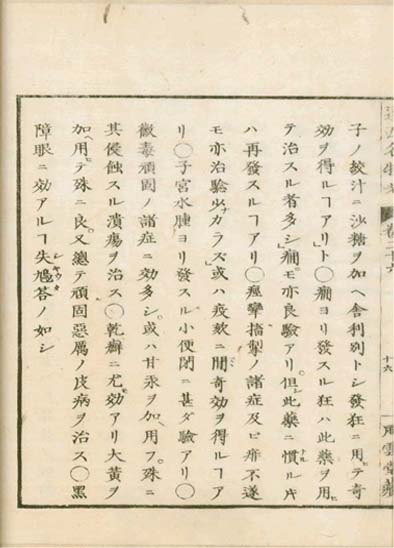 卷二十六
十六
子ノ絞汁ニ沙糖ヲ加ヘ舎利別トシ發狂ニ用テ奇
効ヲ得ルヿアリト○癇ヨリ發スル狂ハ此藥ヲ用
テ治スル者多シ癇モ亦良驗アリ但此藥ニ慣ル片
ハ再發スルヿアリ○痙攣搐掣ノ諸症及ビ痱不遂
モ亦治驗少ナカラズ或ハ疫欬ニ間奇効ヲ得ルヿア
リ○子宮水腫ヨリ發スル小便閉ニ甚ダ驗アリ○
黴毒頑固ノ諸症ニ効多シ或ハ甘汞ヲ加ヘ用フ殊ニ
其侵蝕スル潰瘍ヲ治ス○乾癬ニ尤効アリ大黄ヲ
加ヘ用テ殊ニ良又總テ頑固惡厲ノ皮病ヲ治ス○黒
障眼ニ効アルヿ失鳩荅ノ如シ